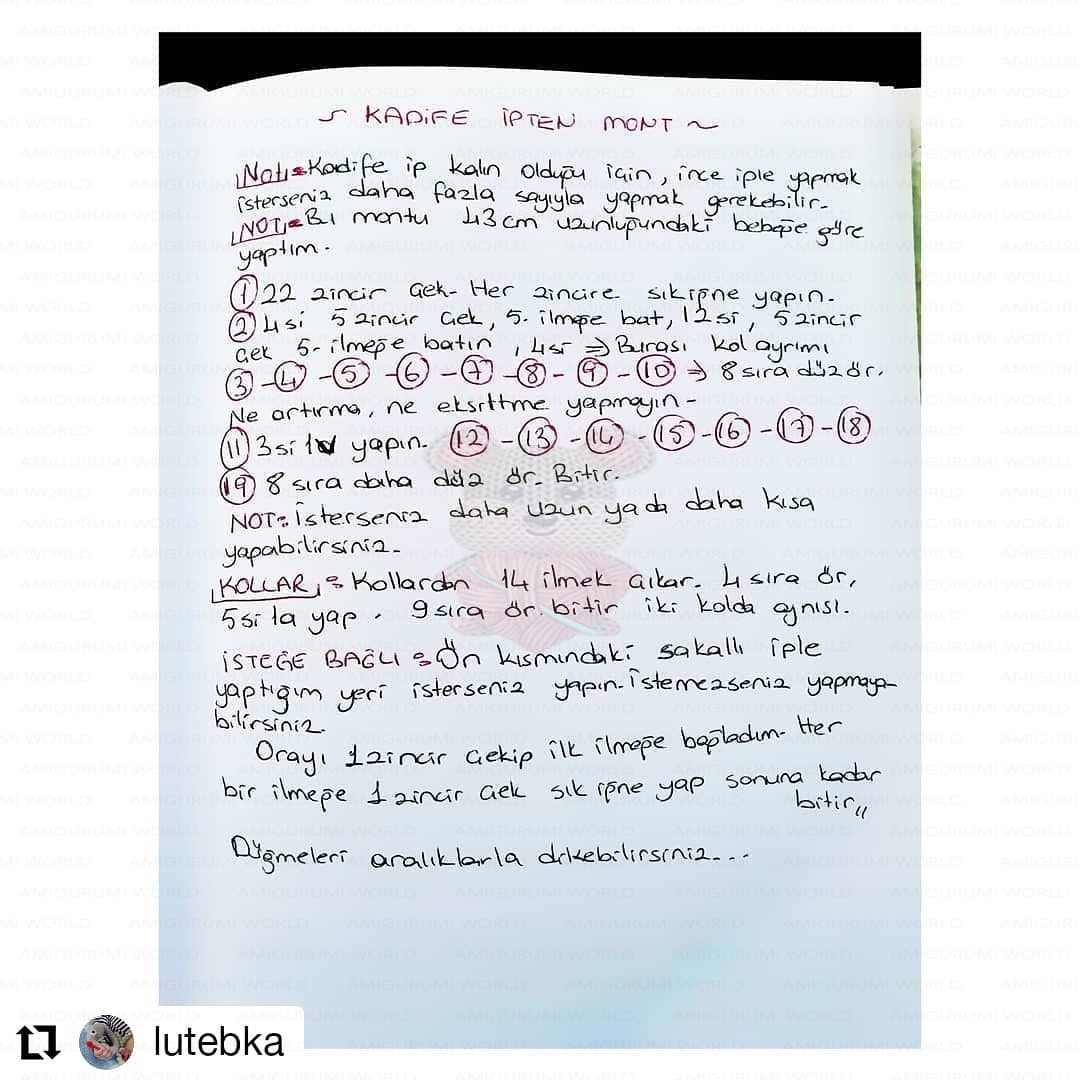 ~ KADİFE İPTEN MONT ~
Not:=Kadife ip kalın olduğu için, ince iple yapmak
isterseniz daha fazla sayıyla yapmak gerekebilir.
NOT:=Bu montu 43cm uzunluğundaki bebeğe göre
yaptım.
① 22 zincir çek. Her zincire sıkiğne yapın.
② 4si 5 zincir çek, 5. ilmeğe bat, 12si, 5 zincir
çek 5. ilmeğe batın, 4si ⇒ Burası kol ayrımı
③-④-⑤-⑥-⑦-⑧-⑨-⑩ → 8 sıra düz ör.
Ne artırma, ne eksiltme yapmayın-
⑪ 3si 1v yapın. ⑫-⑬-⑭-⑮-⑯-⑰-⑱
⑲ 8 sıra daha düz ör. Bitir.
NOT: isterseniz daha uzun yada daha kısa
yapabilirsiniz.
KOLLAR: Kollardan 14 ilmek çıkar. 4 sıra ör,
5si 1a yap. 9 sıra ör. bitir iki kolda aynısı.
İSTEĞE BAĞLI: Ön kısmındaki sakallı iple
yaptığım yeri isterseniz yapın. istemezseniz yapmaya-
bilirsiniz
Orayı 1 zincir çekip ilk ilmeğe bağladım. Her
bir ilmeğe 1 zincir çek sık iğne yap sonuna kadar
bitir,,
Düğmeleri aralıklarla dikebilirsiniz...
lutebka